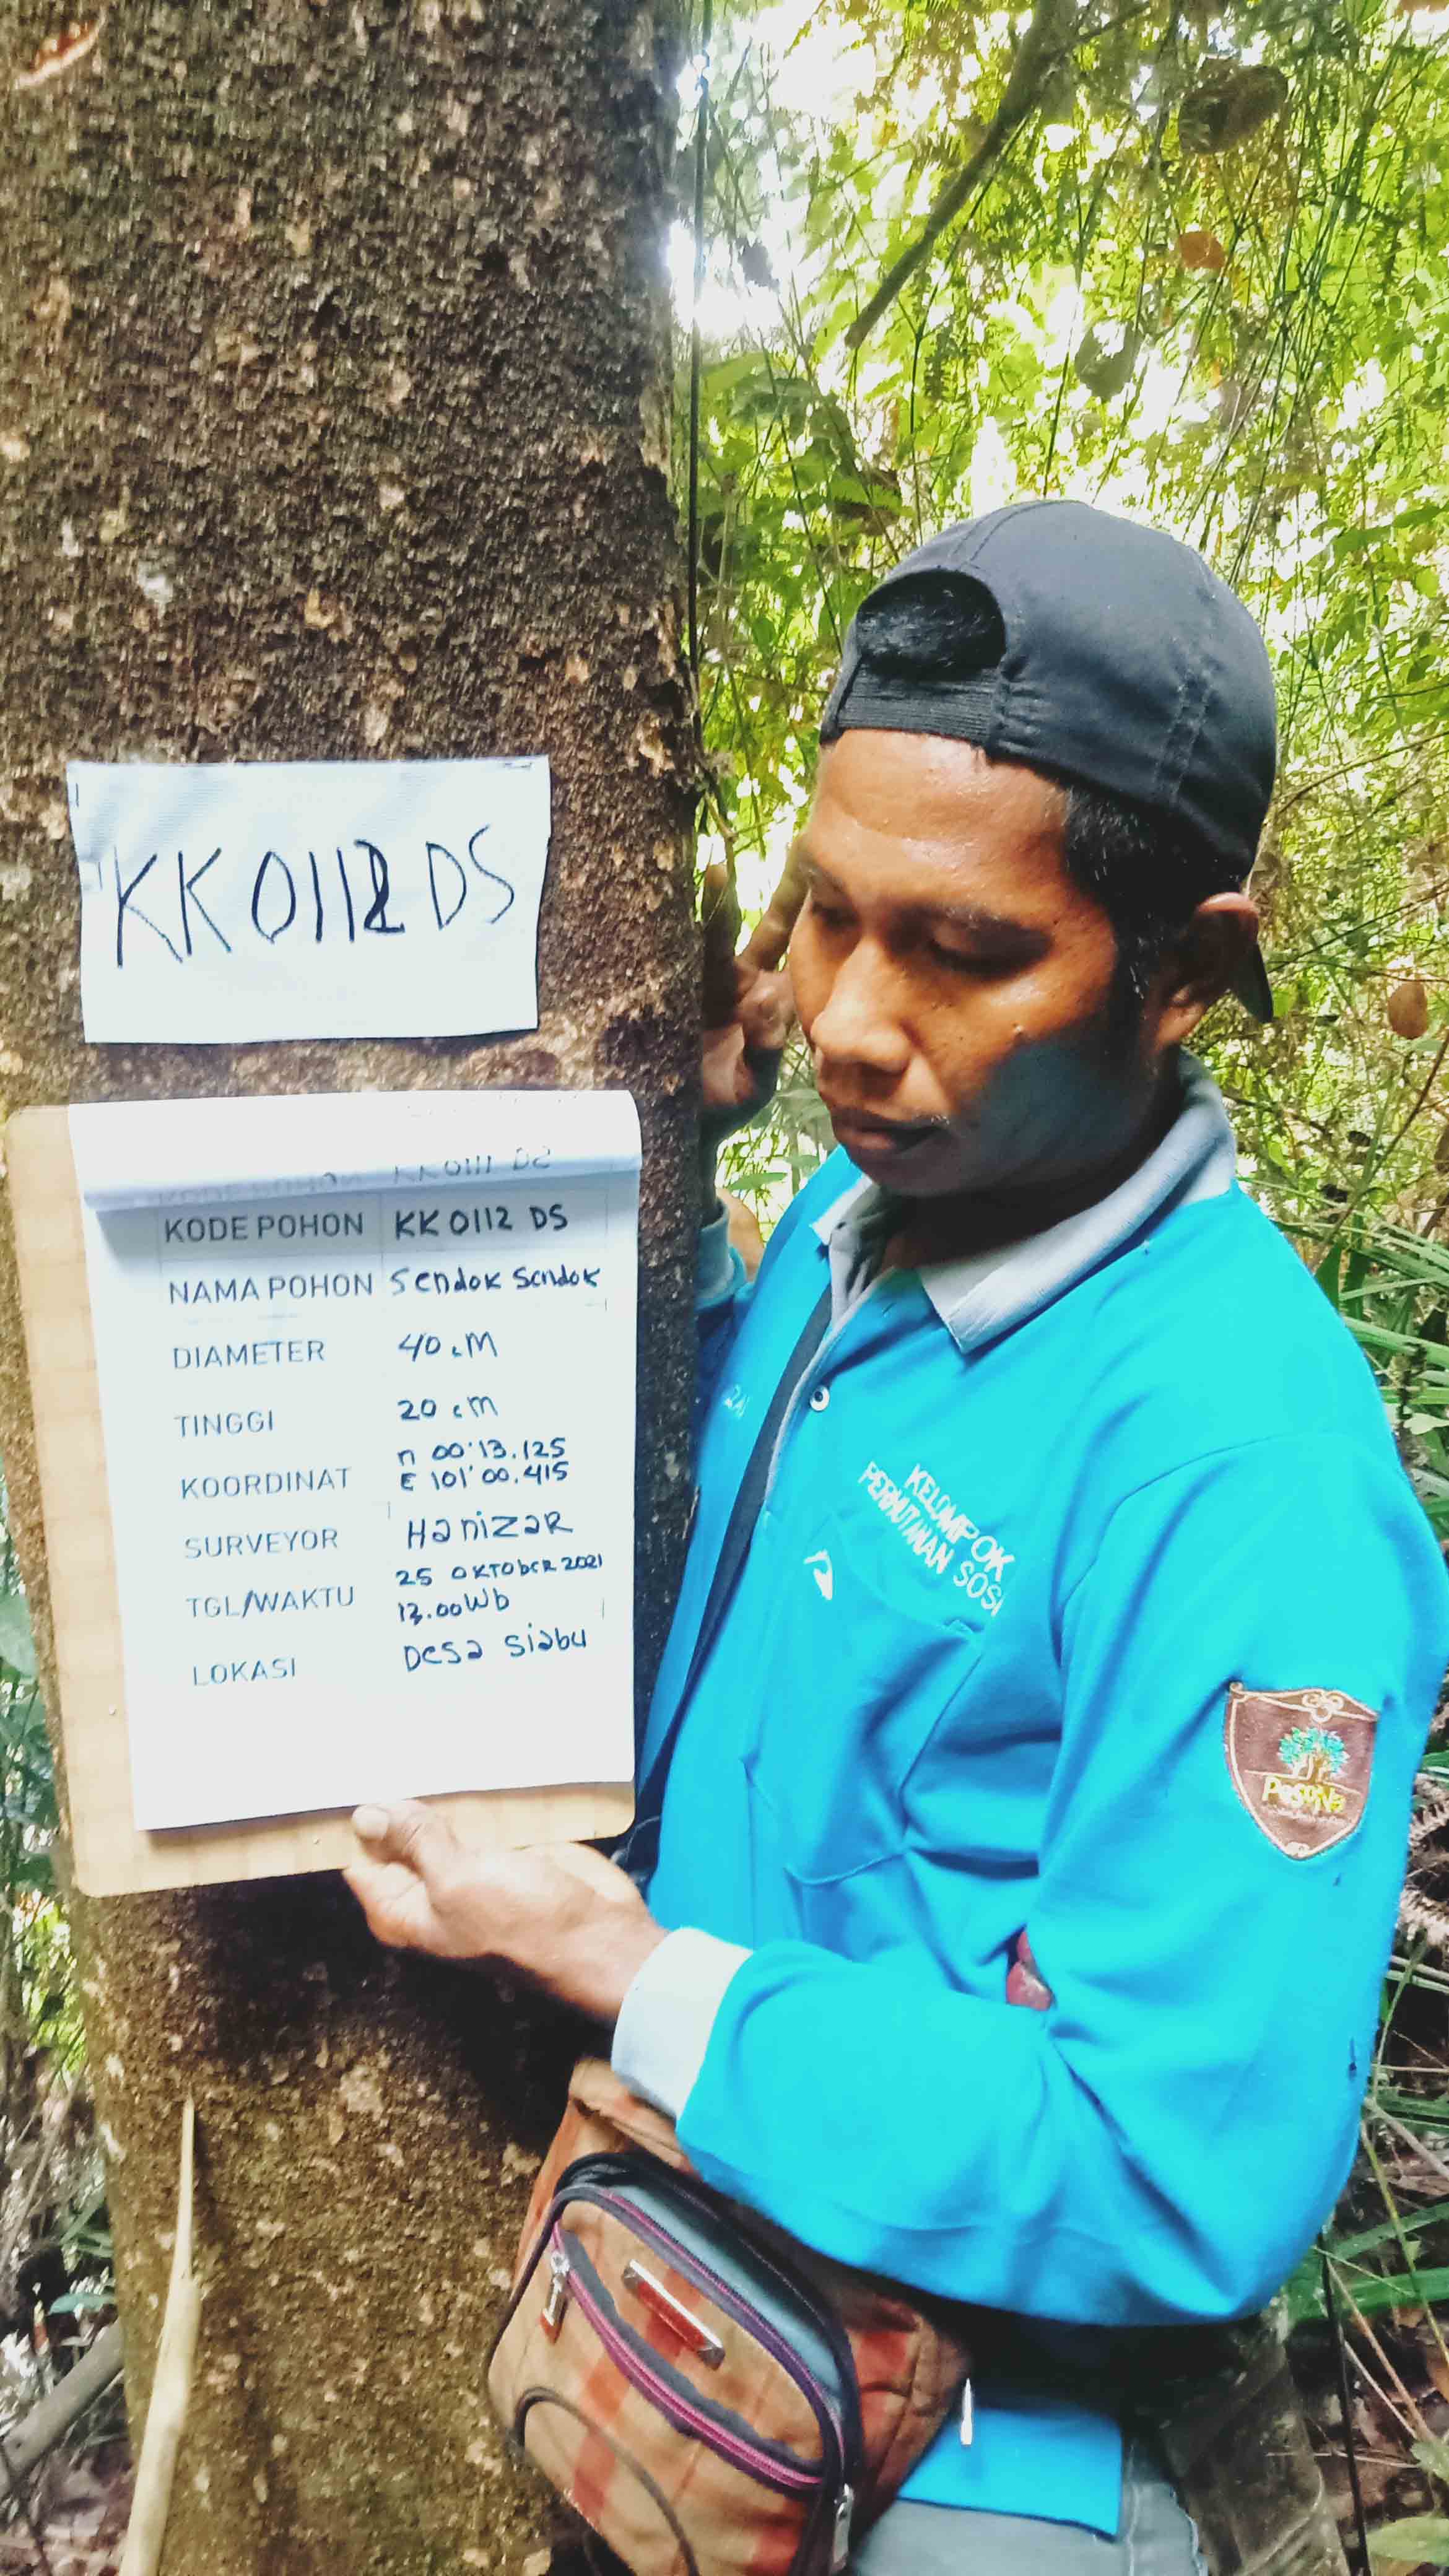 KK 0112 DS
KODE POHON KK 0112 DS
NAMA POHON Sendok Sendok
DIAMETER 40 cM
TINGGI 20 cM
KOORDINAT n 00'13.125
E 101'00.415
SURVEYOR HanizaR
TGL/WAKTU 25 OKTObER 2021
13.00 Wb
LOKASI Desa Siabu
KELOMPOK
PERHUTANAN SOSI
PESONA